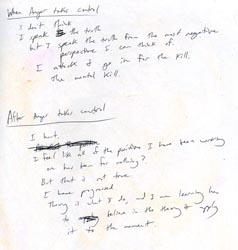 When Anger takes control
I don't think
I speak the truth
but I speak the truth from the most negative
perspective I can think of.
I attack & go in for the kill.
The mental kill.
After Anger takes control
I hurt.
I feel like all of the positive I have been working
on has been for nothing?
But that is not true.
I have progressed
Theory is what I do, and I am learning how
to believe in the theory & apply
it to the moment.